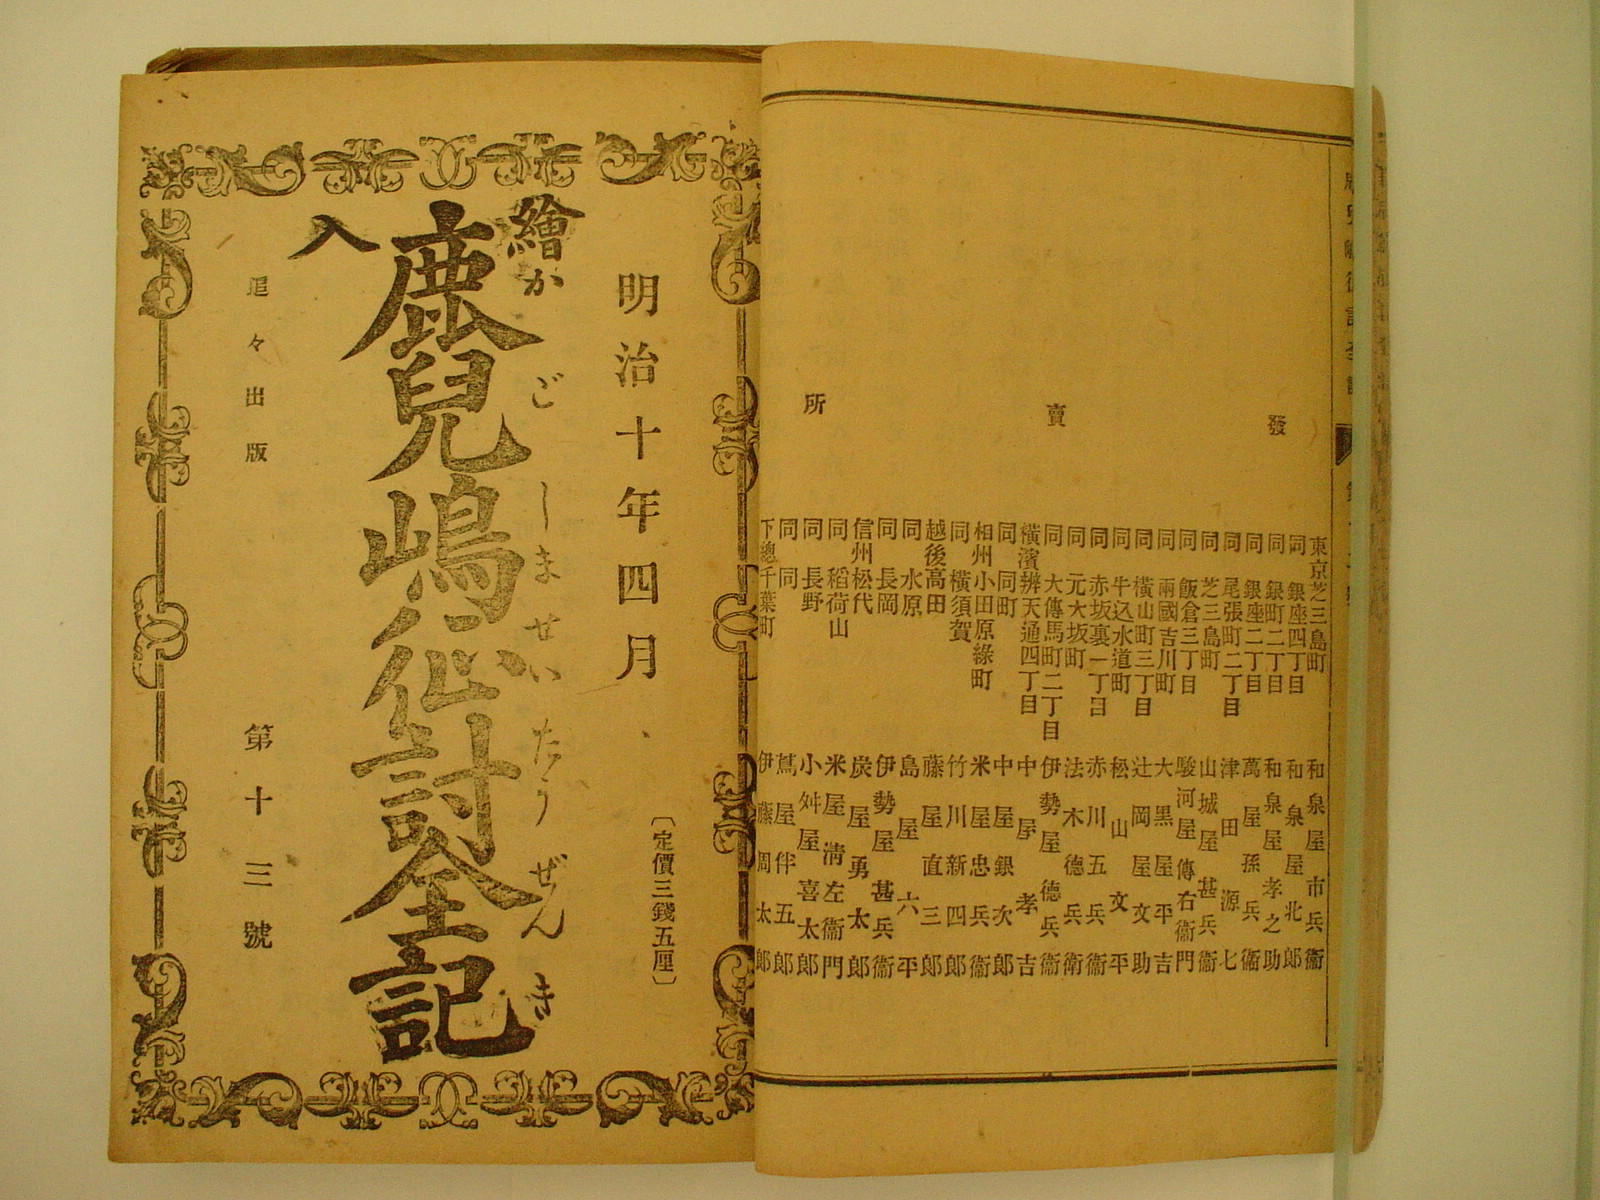 發賣所
東京芝三島町 和泉屋市兵衞
同 銀座四丁目 和泉屋北郎
同 銀町二丁目 和泉屋孝之助
同 銀座二丁目 萬屋孫兵衞
同 尾張町二丁目 津田源七
同 芝三島町 山城屋甚兵衞
同 飯倉三丁目 駿河屋傳右衞門
同 兩國吉川町 大黒屋平吉
同 横山町三丁目 辻岡屋文助
同 牛込水道町 松山文平
同 赤坂裏一丁目 赤川五兵衞
同 元大坂町 法木德兵衞
同 大傳馬町二丁目 伊勢屋德兵衞
横濱辨天通四丁目 中屋孝吉
同 同町 中屋銀次郎
相州小田原綠町 米屋忠兵衞
同 横須賀 竹川新四郎
越後高田 藤屋直三郎
同 水原 島屋六平
同 長岡 伊勢屋甚兵衞
信州松代 炭屋勇太郎
同 稻荷山 米屋淸左衞門
同 長野 小舛屋喜太郎
同 同 蔦屋伴五郎
下總千葉町 伊藤周太郎
明治十年四月
〔定價三錢五厘〕
繪入
鹿兒嶋征討全記
かごしませいたうぜんき
第十三號
追々出版